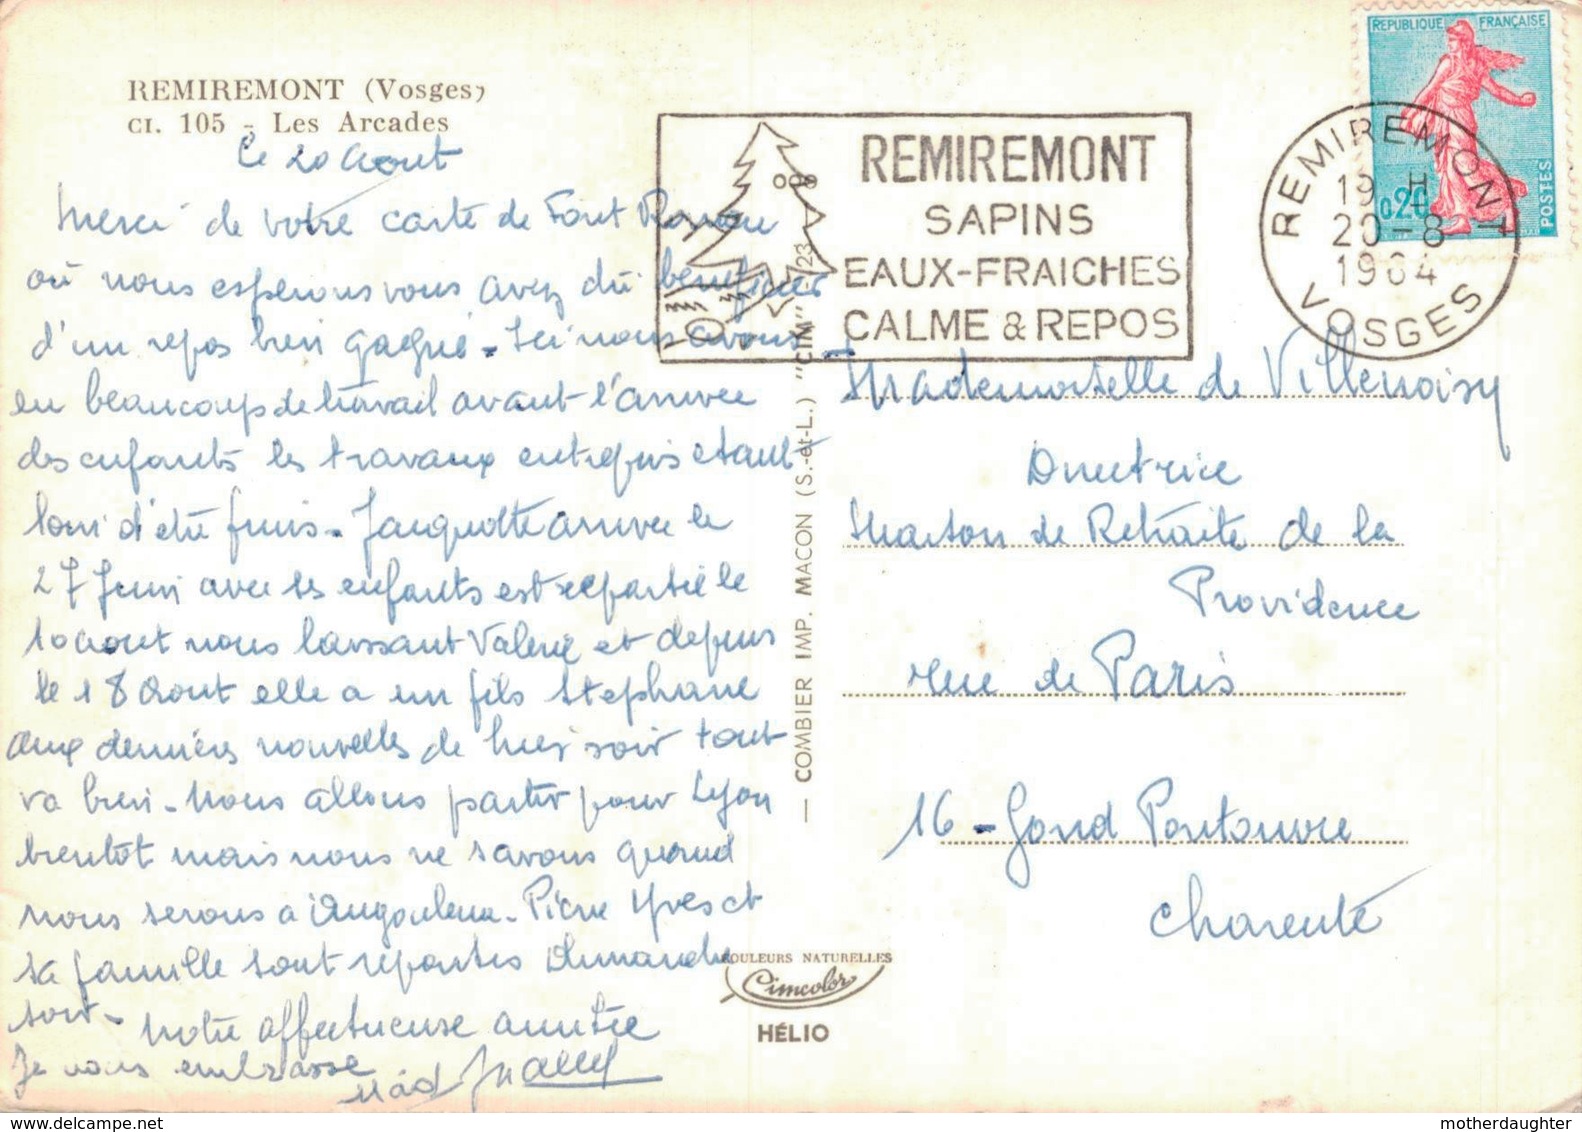 REMIREMONT (Vosges)
CI. 105 - Les Arcades
Le 20 Aout
Merci de votre carte de Font Romeu
où nous esperons vous avez dû beneficier
d'un repos bien gagné - Ici nous avons
eu beaucoup de travail avant l'arrivee
des enfants les travaux entrepris etant
loin d'etre finis - Jacquotte arrivee le
27 Juin avec les enfants est repartie le
10 Aout nous laissant Valerie et depuis
le 18 Aout elle a un fils Stephane
aux dernières nouvelles de hier soir tout
va bien - Nous allons partir pour Lyon
bientôt mais nous ne savons quand
nous serons a Angouleme - Pierre Yves et
sa famille sont repartis Dimanche
soir - Notre affectueuse amitie
Je vous embrasse
REMIREMONT
SAPINS
EAUX-FRAICHES
CALME & REPOS
REPUBLIQUE FRANÇAISE
0,20
POSTES
REMIREMONT
19 H
20-8
1964
VOSGES
Mademoiselle de Villenoisy
Directrice
Maison de Retraite de la
Providence
rue de Paris
16 - Gond Pontouvre
Charente
— COMBIER IMP. MACON (S.-et-L.) "CIM" - 23
COULEURS NATURELLES
Cimcolor
HÉLIO
motherdaughter